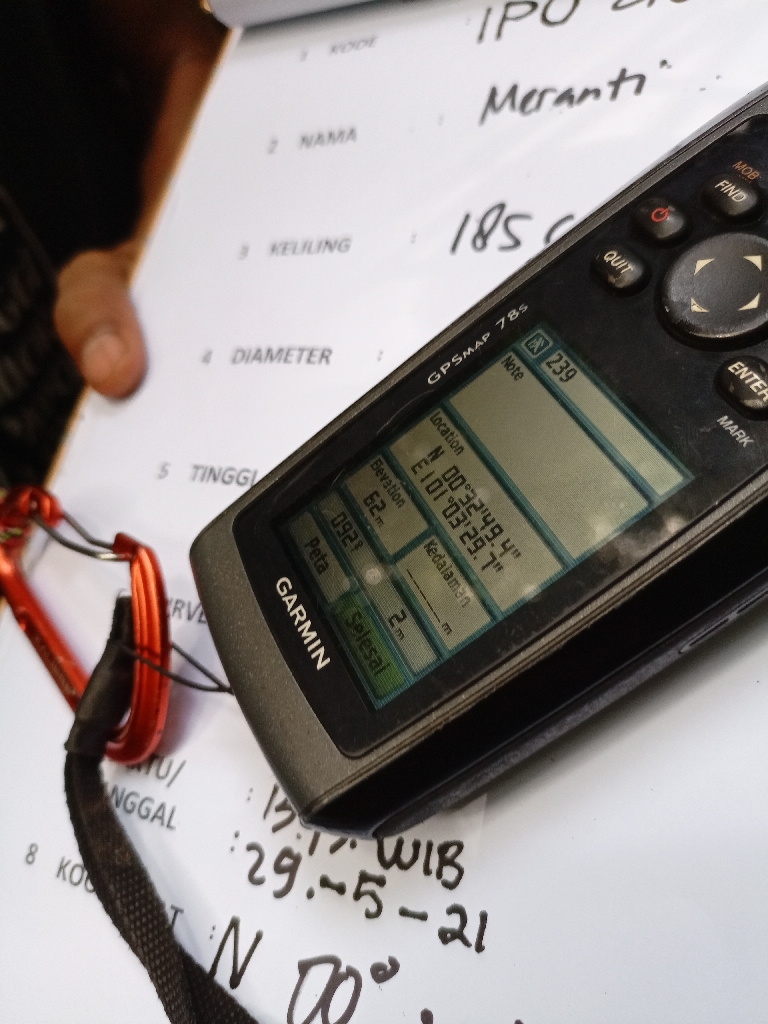 1 KODE
IPO
2 NAMA :
Meranti
3 KELILING : 185
4 DIAMETER :
5 TINGGI
: WIB
NGGAL : 29.-5-21
8 KOO
: N 00°
MOB
FIND
QUIT
ENTER
MARK
GPSMAP 78s
239
Note
Location
N 00°32'49.4"
E101°03'29.7"
Elevation
62m
Kedalaman
_____m
092°
2m
Peta
Selesai
GARMIN